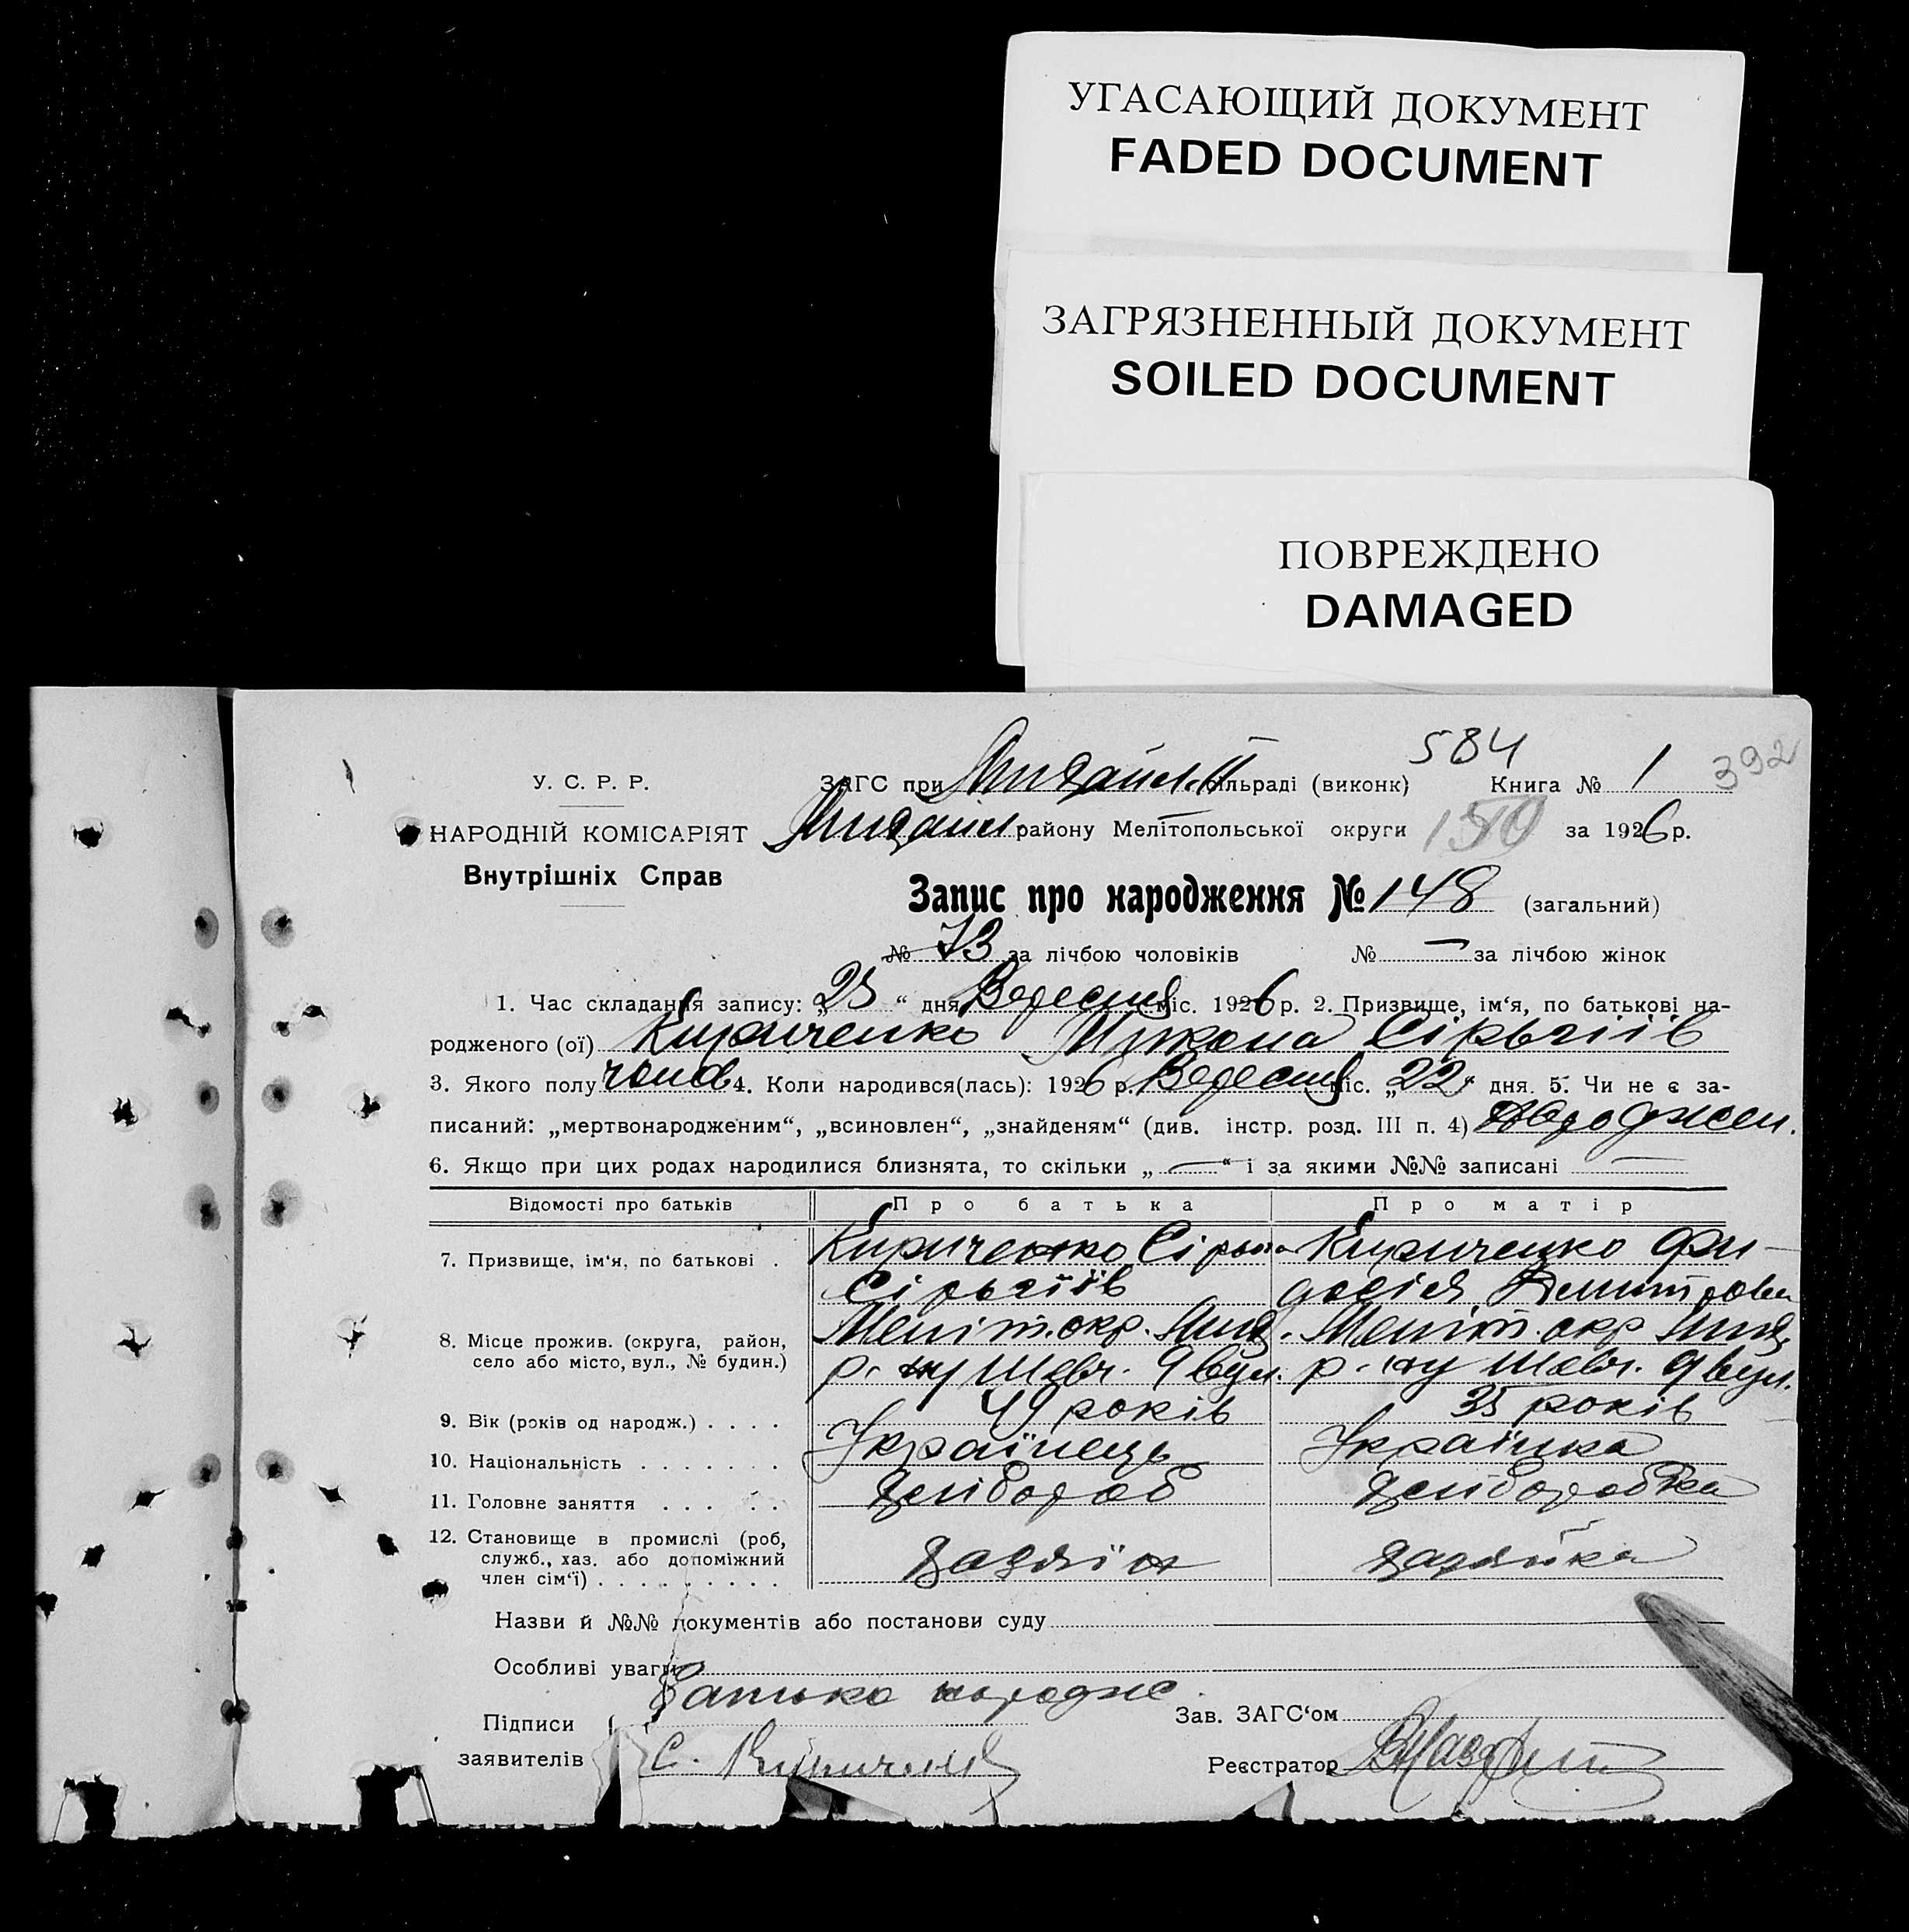 УГАСАЮЩИЙ ДОКУМЕНТ
FADED DOCUMENT
ЗАГРЯЗНЕННЫЙ ДОКУМЕНТ
SOILED DOCUMENT
ПОВРЕЖДЕНО
DAMAGED
584
392
У. С. Р. Р.
ЗАГС при сільраді (виконк) Книга № 1
НАРОДНІЙ КОМІСАРІЯТ
району Мелітопольської округи 150 за 1926 р.
Внутрішніх Справ
Запис про народження № 148 (загальний)
№ 73 за лічбою чоловіків № — за лічбою жінок
1. Час складання запису: „25“ дня Вересня міс. 1926 р. 2. Призвище, ім‘я, по батькові на-
родженого (ої) Кириченко Микола Сірьгіїв
3. Якого полу чолов 4. Коли народився(лась): 1926 р. Вересня міс. „22“ дня 5. Чи не є за-
писаний: „мертвонародженим“, „всиновлен“, „знайденям“ (див. інстр. розд. III п. 4)
6. Якщо при цих родах народилися близнята, то скільки „—“ і за якими №№ записані —
Відомості про батьків Про батька Про матір
7. Призвище, ім‘я, по батькові . Кириченко Кириченко Фи-
Сірьгіїв досія Дмитрови
8. Місце прожив. (округа, район, Меліт. окр. Меліт. окр
село або місто, вул., № будин.) р-ну Шевч. 9 вул. р-ну Шевч. 9 вул.
9. Вік (років од народж.) . . . . 49 років 35 років
10. Національність . . . . . . . Українець Українка
11. Головне заняття . . . . . . хлібороб хліборобка
12. Становище в промислі (роб,
служб., хаз. або допоміжний хазяїн хазяйка
член сім‘ї) . . . . . . . . .
Назви й №№ документів або постанови суду
Особливі уваги
Батько
Підписи Зав. ЗАГС‘ом
заявителів С. Кириченко Реєстратор